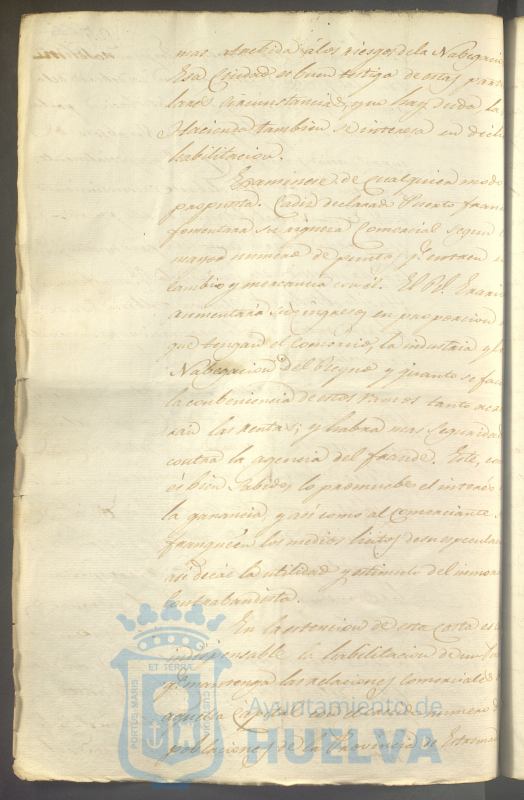 mas atrebida á los riesgos de la Nabegacio
Esa Ciudad es buen testigo de estas
lares circunstancias, que hay deda la
Hacienda tambien se interesa en dich
habilitacion.
Examinese de qualquier modo
propuesta. Cadiz declarado Puerto franc
fomentara su riqueza Comercial segun
mayor numero de puntos q.e entren
cambio y mercancia con él. El R.l Erario
aumentará sus ingresos en proporcion
que tengan el Comercio, la industria y
Nabegacion del Reyno y quanto se faci
la conbeniencia de estos ramos tanto
ran las rentas; y habra mas seguridad
contra la agencia del fraude. Este, co
és bien sabido, lo promuebe el interés
la ganancia, y asi como al Comerciante
franqueen los medios licitos de su especula
asi decáe la utilidad y estimulo del inmo
Contrabandista.
En la atencion de esta Carta es
indispensable la habilitacion de un
q.e mantenga las relaciones comerciales
aquella Capital con el numero
poblaciones de la Provincia de Estrema
PORTUS MARIS
ET TERRÆ
CUSTODIA
Ayuntamiento de
HUELVA